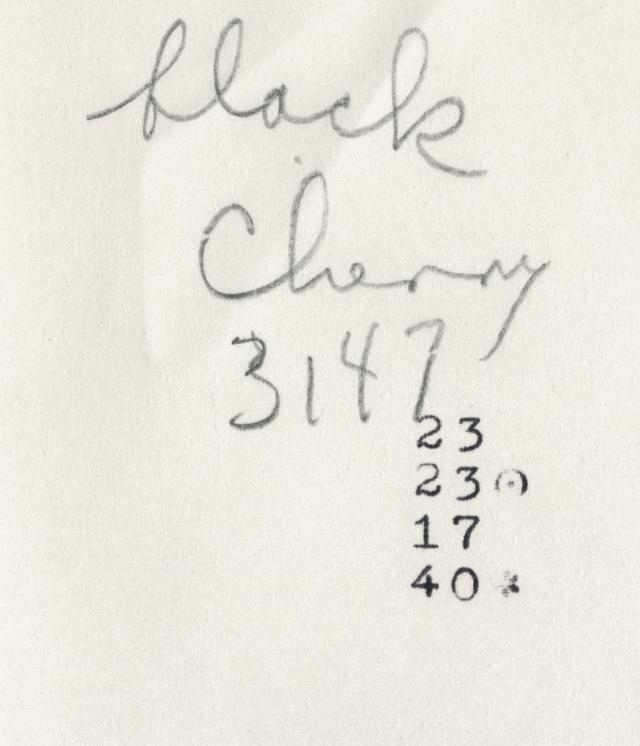 black
Cherry
3147
23
23
17
40 *